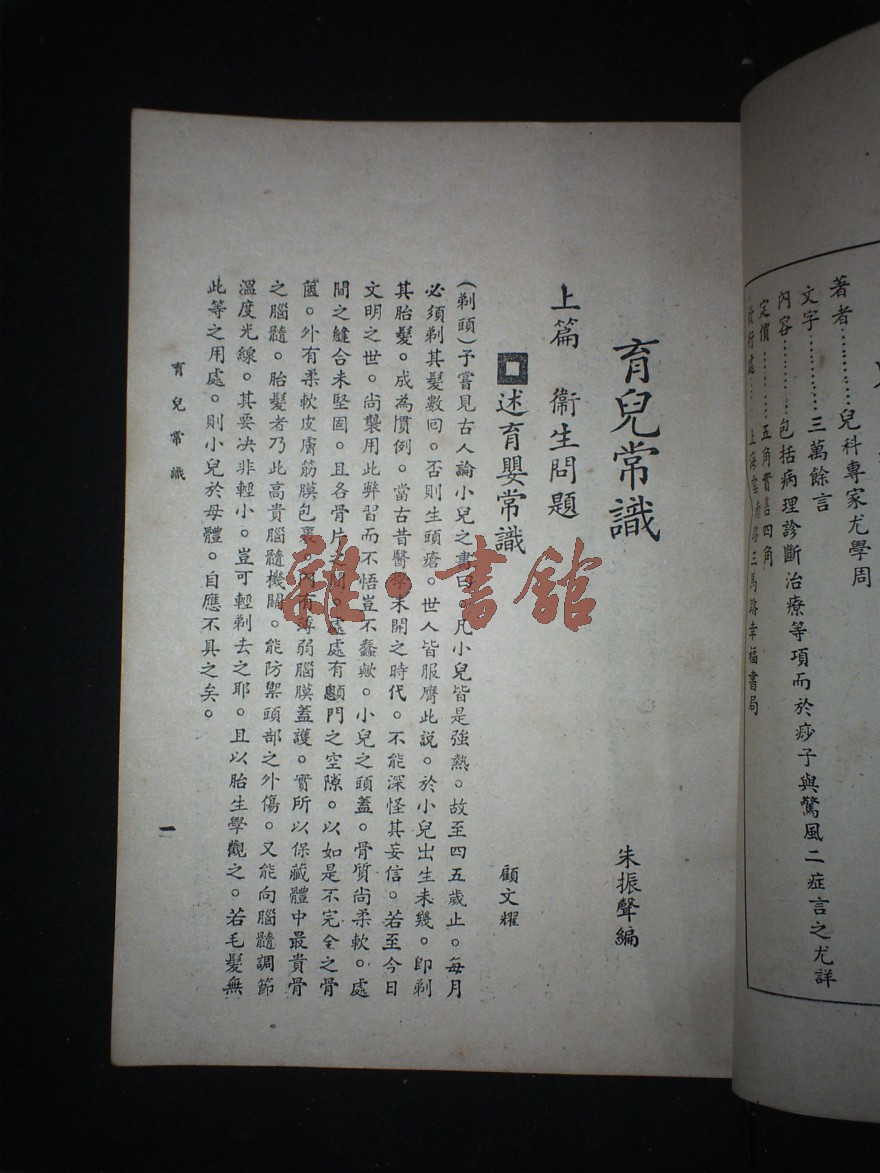 著者…………兒科專家尤學周
文字…………三萬餘言
內容………包括病理診斷治療等項而於痧子與驚風二症言之尤詳
定價………五角實售四角
三馬路幸福書局
育兒常識
朱振聲編
上篇 衛生問題
述育嬰常識
顧文耀
(剃頭)予嘗見古人論小兒之書曰。凡小兒皆是強熱。故至四五歲止。每月
必須剃其髮數回。否則生頭瘡。世人皆服膺此說。於小兒出生未幾。即剃
其胎髮。成為慣例。當古昔醫學未開之時代。不能深怪其妄信。若至今日
文明之世。尚襲用此弊習而不悟豈不蠢歟。小兒之頭蓋。骨質尚柔軟。處
間之縫合未堅固。且各骨片之間。處處有顖門之空隙。以如是不完全之骨
篋。外有柔軟皮膚筋膜包裹。內有薄弱腦膜蓋護。實所以保藏體中最貴骨
之腦髓。胎髮者乃此高貴腦髓機關。能防禦頭部之外傷。又能向腦髓調節
溫度光線。其要决非輕小。豈可輕剃去之耶。且以胎生學觀之。若毛髮無
此等之用處。則小兒於母體。自應不具之矣。
育兒常識
一
雜·書館